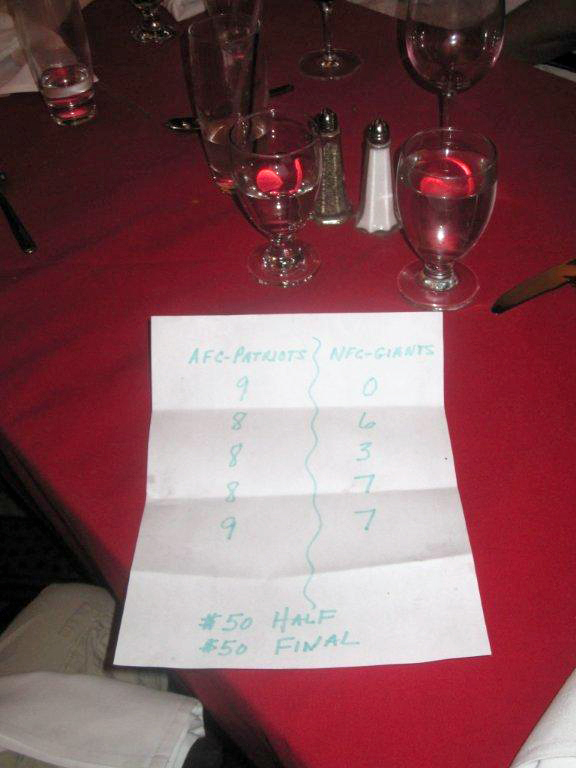 AFC-PATRIOTS NFC-GIANTS
9 0
8 6
8 3
8 7
9 7
$50 HALF
$50 FINAL